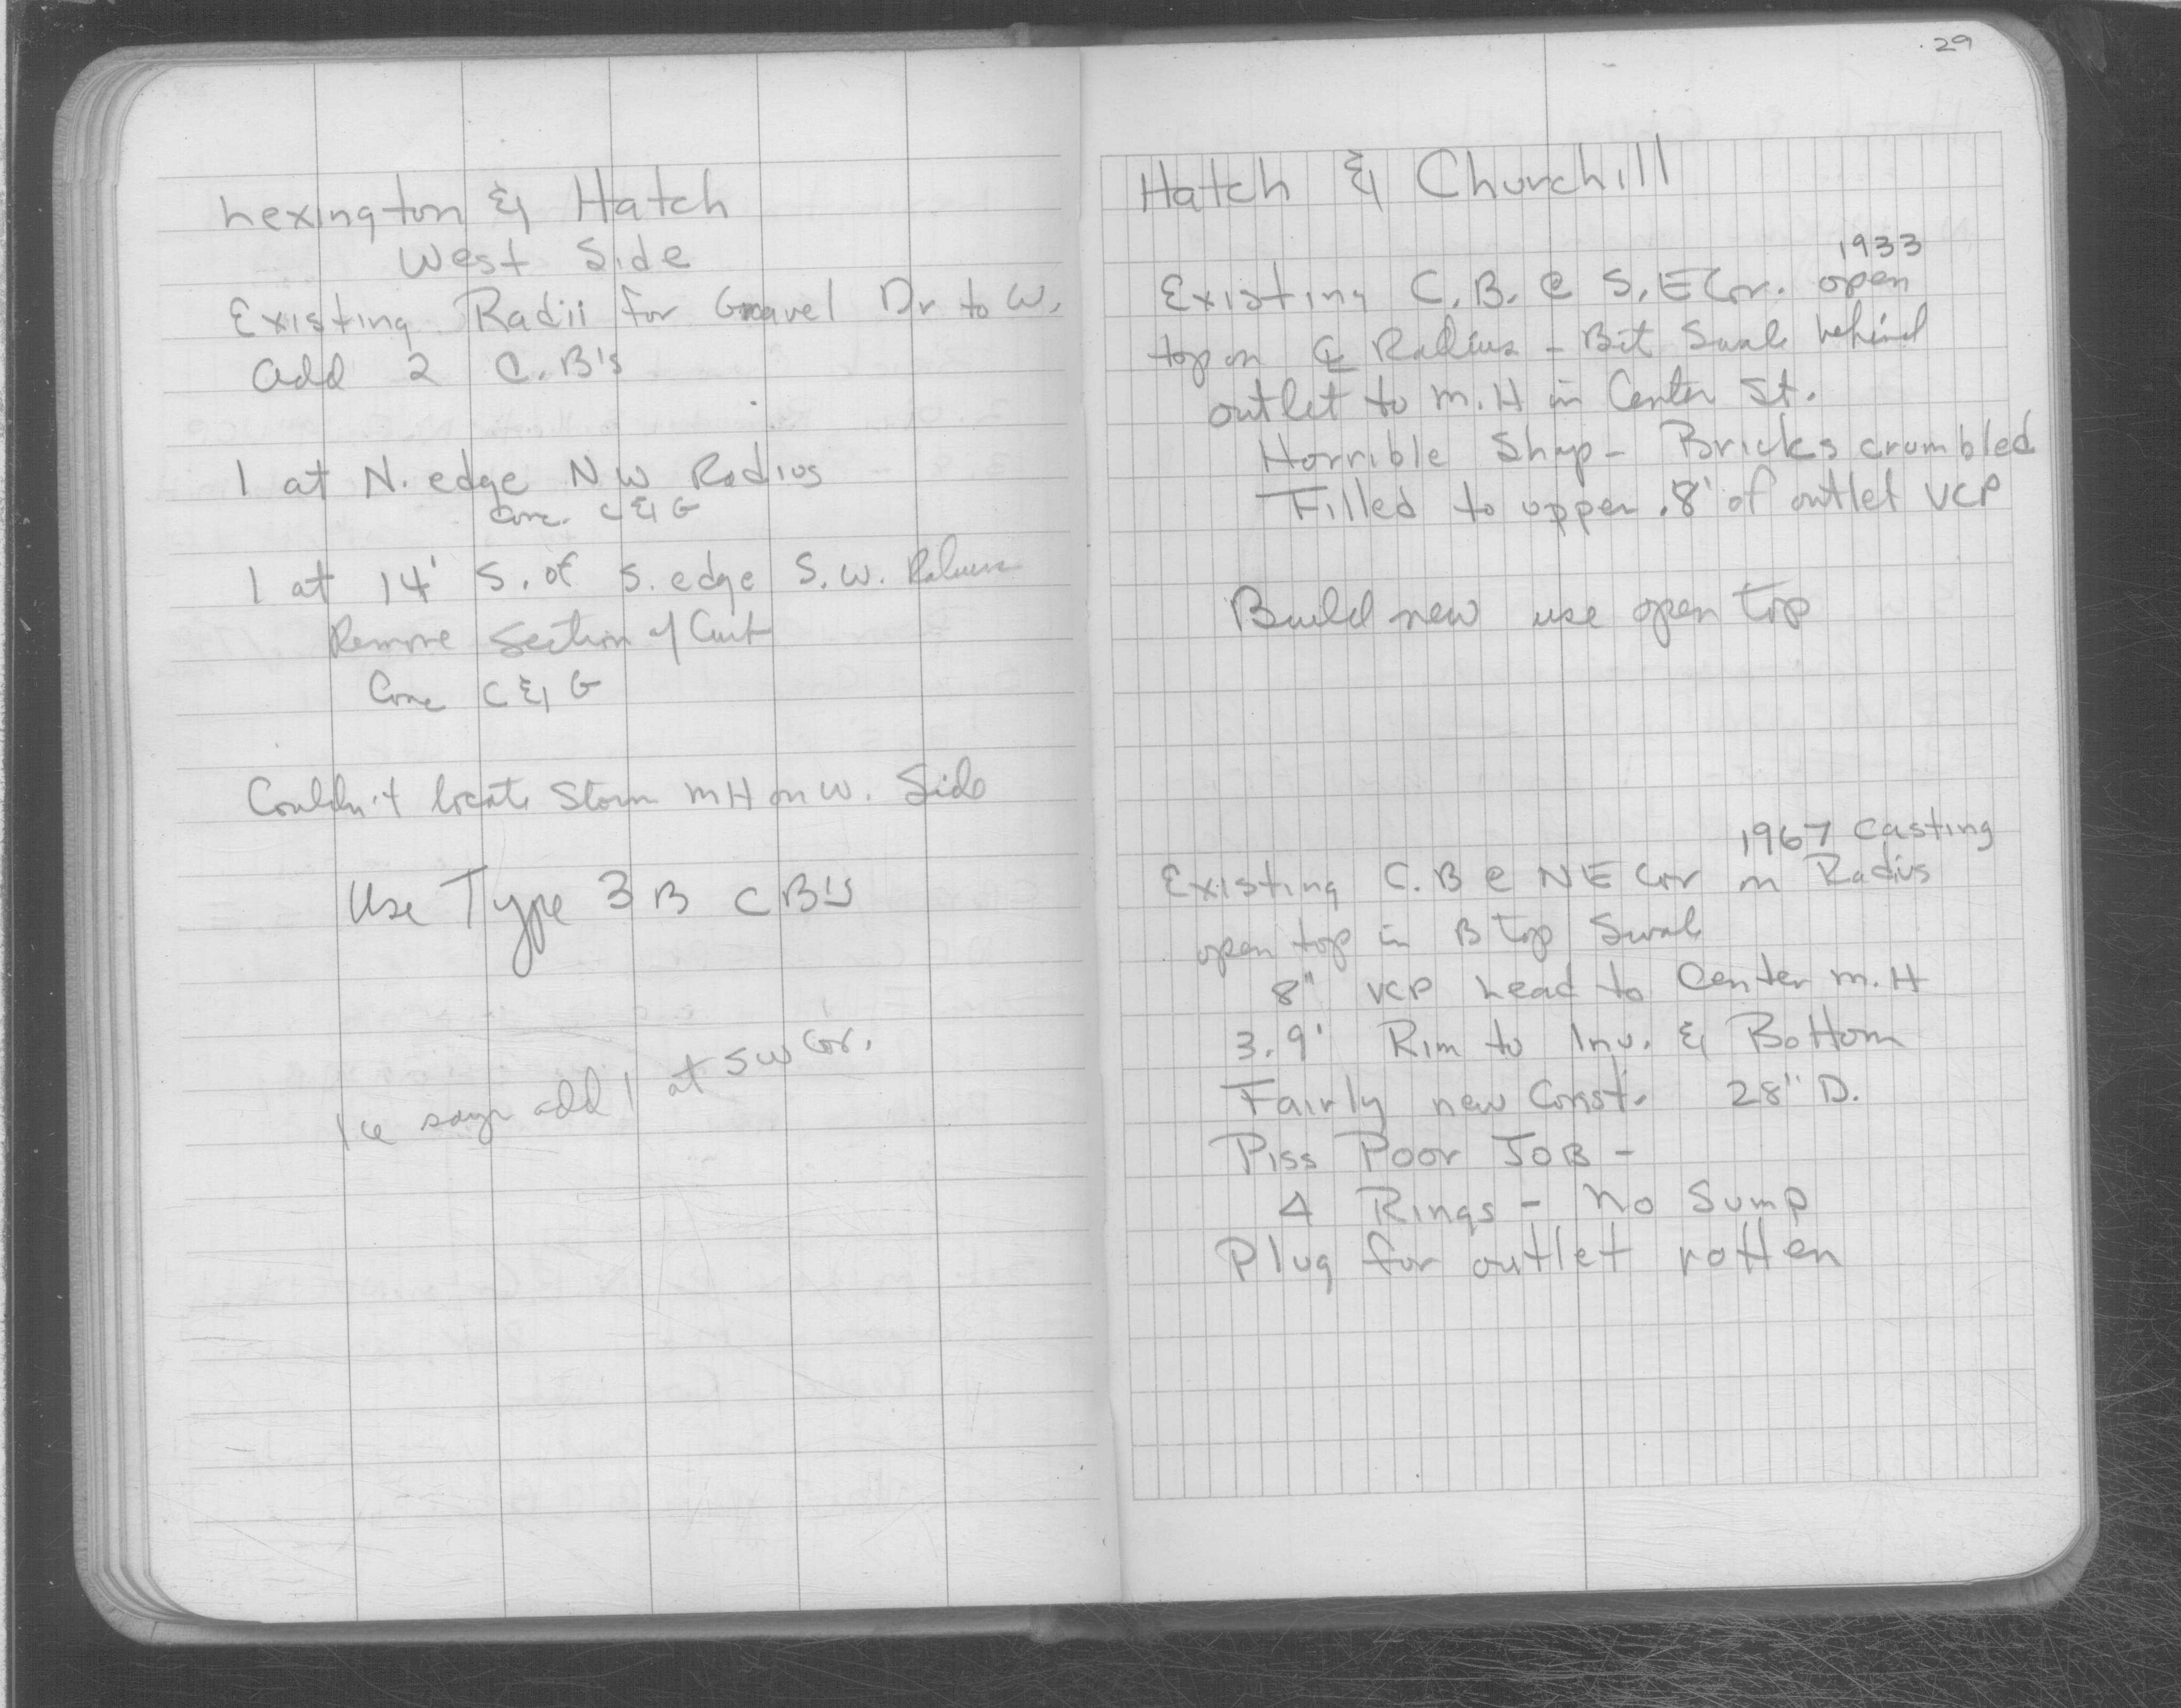 Lexington & Hatch
West Side
Existing Radii for Gravel Dr to W.
Add 2 C.B's
1 at N. edge NW Radius
Conc. C & G
1 at 14' S. of S. edge S.W. Radius
Remove Section of Curb
Conc C & G
Couldn't locate Storm MH on W. Side
Use Type 3B CB's
says add 1 at SW Cor.
29
Hatch & Churchill
1933
Existing C.B. @ S.E Cor. open
top on ℄ Radius - Bit Swale behind
outlet to M.H in Center St.
Horrible Shap - Bricks crumbled
Filled to upper .8' of outlet VCP
Build new use open top
1967 Casting
Existing C.B @ NE Cor on Radius
open top in B Top Swale
8" VCP Lead to Center M.H
3.9' Rim to Inv. & Bottom
Fairly new Const. 28" D.
Piss Poor JOB -
4 Rings - No Sump
Plug for outlet rotten